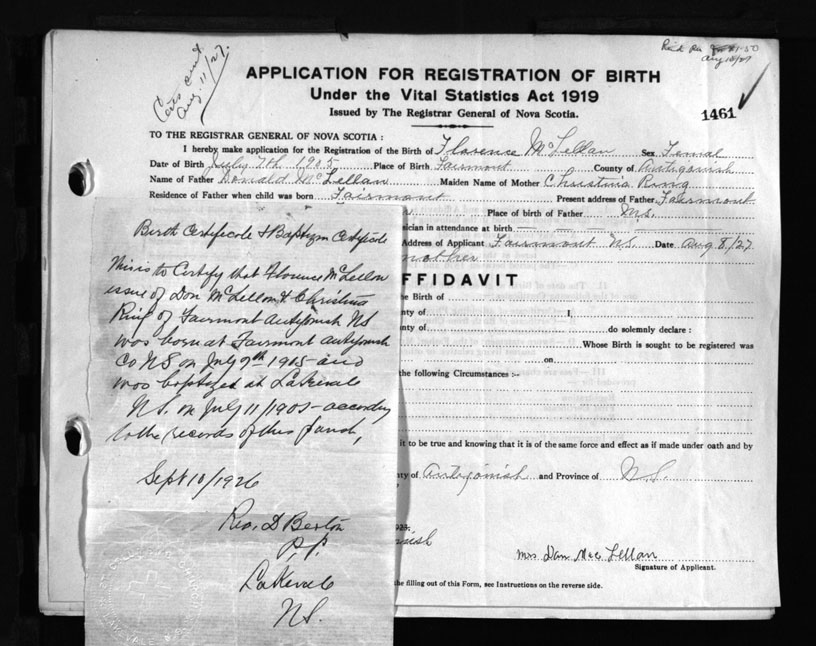 Certs sent
Aug. 11/27.
Aug 18/27
APPLICATION FOR REGISTRATION OF BIRTH
Under the Vital Statistics Act 1919
Issued by The Registrar General of Nova Scotia.
1461
TO THE REGISTRAR GENERAL OF NOVA SCOTIA :
I hereby make application for the Registration of the Birth of Florence McLellan Sex Femal
Date of Birth July 7th 1905 Place of Birth Fairmont County of Antigonish
Name of Father Donald McLellan Maiden Name of Mother Christina Ring
Residence of Father when child was born Fairmont Present address of Father Fairmont
Place of Birth of Father N.S.
sician in attendance at birth
Address of Applicant Fairmont N.S. Date Aug 8/27
mother
FFIDAVIT
the Birth of
nty of I,
nty of do solemnly declare :
Whose Birth is sought to be registered was
on
the following Circumstances :-
it to be true and knowing that it is of the same force and effect as if made under oath and by
nty of Antagonish and Province of N.S.
nish
Mrs Dan Mac Lellan
Signature of Applicant.
the filling out of this Form, see Instructions on the reverse side.
Birth Certificate & Baptism Certificate
This is to Certify that Florence McLellan
issue of Don McLellan & Christina
Ring of Fairmont Antigonish NS
was born at Fairmont Antigonish
Co NS on July 7th 1905 and
was baptized at Lakevale
N.S. on July 11/1905 according
to the records of this parish,
Sept 10/1926
Rev. D Berton
P.P.
Lakevale
N.S.